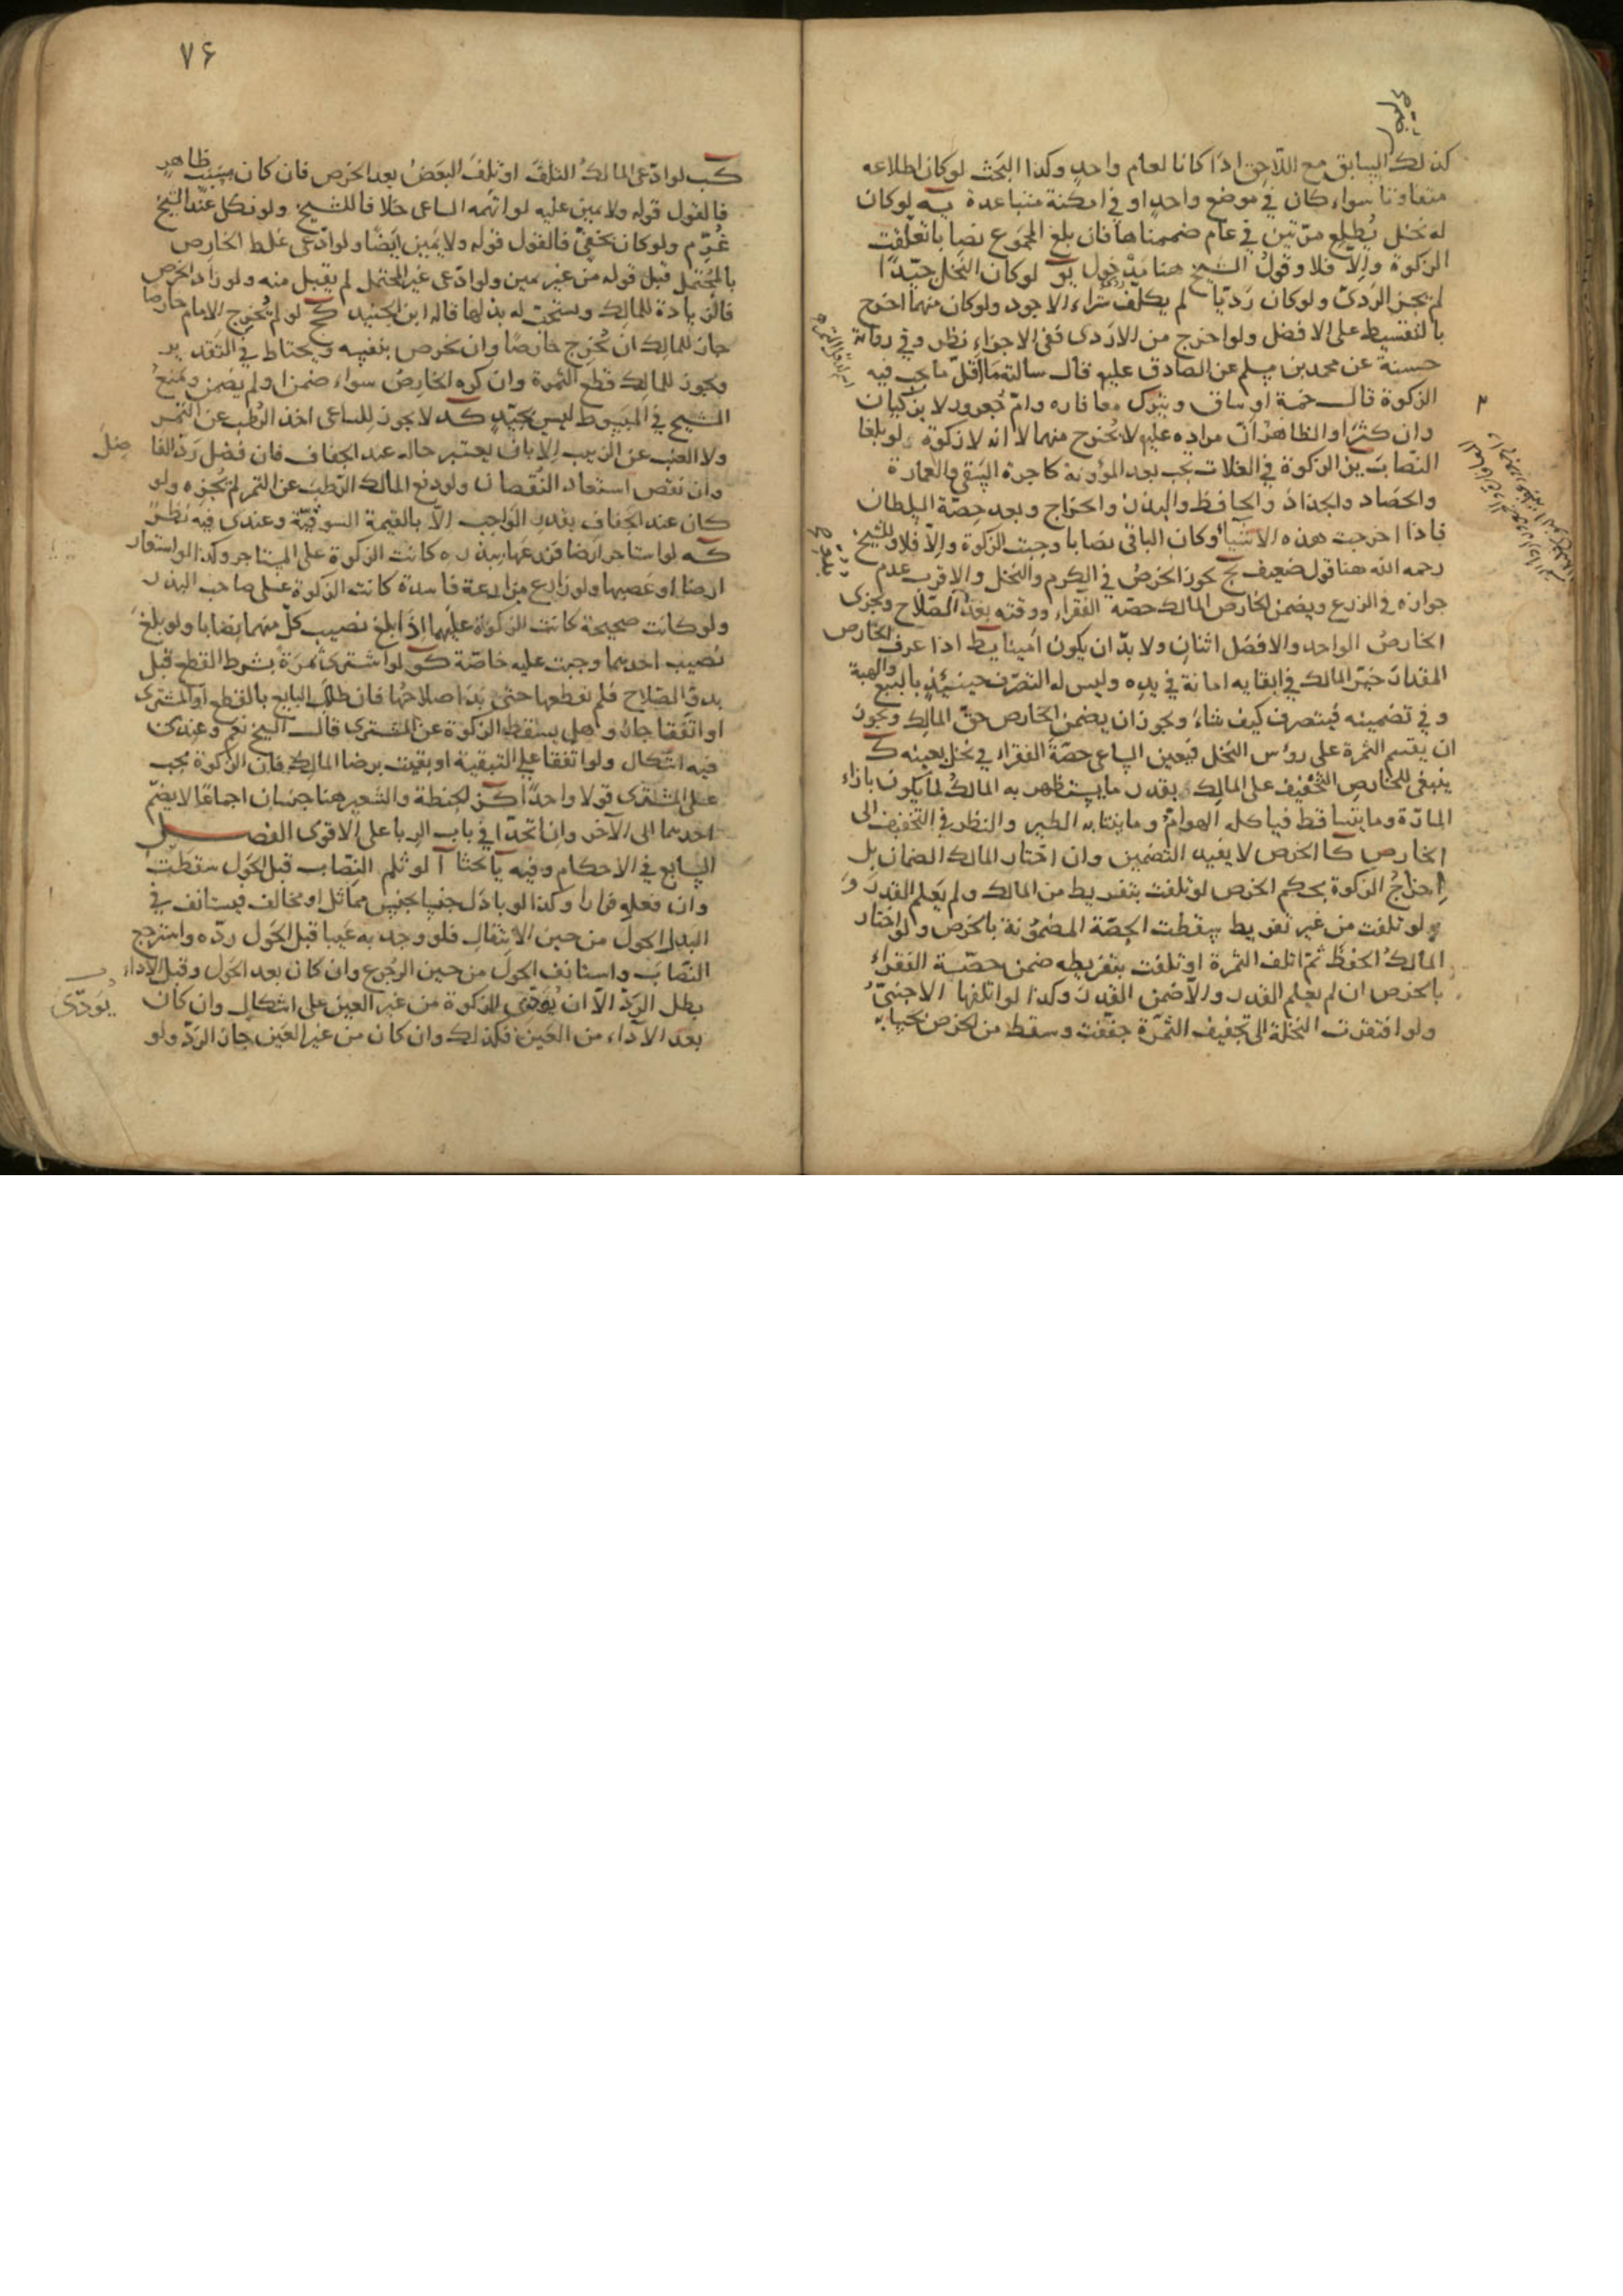 كذلك السابق مع اللاحق اذا كانا لعام واحد وكذا البحث لو كان اطلاعه
متفاوتا سواء كان في موضع واحد او في امكنة متباعدة يه لو كان
له نخل يُطلع مرّتين في عام ضممناها فان بلغ المجموع نصابا تعلّقت
الزكوة والّا فلا وقول الشيخ هنا مدخول يو لو كان النخل جيّدا
لم يجز الردىّ ولو كان رديّا لم يكلّف شراء الاجود ولو كان منهما اخرج
بالتقسيط على الافضل ولو اخرج من الاردى ففي الاجزاء نظر وفي رواية
حسنة عن محمد بن مسلم عن الصادق عليه قال سالته ما اقلّ ما يجب فيه
الزكوة قال خمسة اوساق ويترك معافاره وامّ جُعرور لا يزكيان
وان كثرا والظاهر انّ مراده عليه لا يُخرج منهما لا انه لا زكوة ولو بلغا
النصاب يز الزكوة في الغلات تجب بعد المؤونة كاجرة السقي والعمارة
والحصاد والجذاذ والحافظ والبذر والخراج وبعد حصّة السلطان
فاذا اخرجت هذه الاشياء وكان الباقي نصابا وجبت الزكوة والّا فلا وللشيخ
رحمه الله هنا قول ضعيف يح يجوز الخرص في الكرم والنخل والاقرب عدم
جوازه في الزرع ويضمن الخارص المالك حصّة الفقراء ووقته بعد الصلاح ويجزى
الخارص الواحد والافضل اثنان ولا بدّ ان يكون امينا يط اذا عرف الخارص
المقدار خيّر المالك في ابقايه امانة في يده وليس له التصرّف حينئذ بالبيع والهبة
وفي تضمينه فيتصرف كيف شاء ويجوز ان يضمن الخارص حقّ المالك ويجوز
ان يقسم الثمرة على رؤس النخل فيعين الساعى حصّة الفقراء في نخل بعينه ك
ينبغى للخارص التخفيف على المالك بقدر ما يستظهر به المالك لما يكون بازاء
المارّة وما يتساقط فياكله الهوامّ وما ينتابه الطير والنظر في التخفيف الى
الخارص كا الخرص لا يفيد التضمين وان اختار المالك الضمان بل
اخراج الزكوة بحكم الخرص لو تلفت بتفريط من المالك ولم يعلم القدر و
ولو تلفت من غير تفريط سقطت الحصّة المضمونة بالخرص ولو اختار
المالك الحفظ ثمّ اتلف الثمرة او تلفت بتفريطه ضمن حصّة الفقراء
بالخرص ان لم يعلم القدر والّا ضمن القدر وكذا لو اتلفها الاجنبىّ
ولو افتقرت النخلة الى تجفيف الثمرة جففت وسقط من الخرص بحسابه
٧۶
كب لو ادّعى المالك التلف او تلف البعض بعد الخرص فان كان بسبب ظاهر
فالقول قوله ولا يمين عليه لو اتّهمه الساعى خلافا للشيخ ولو نكل عند الشيخ
غُرّم ولو كان بخفىّ فالقول قوله ولا يمين ايضا ولو ادّعى غلط الخارص
بالمحتمل قبل قوله من غير يمين ولو ادّعى غير المحتمل لم يقبل منه ولو زاد الخرص
فالزيادة للمالك ويستحبّ له بذلها قاله ابن الجنيد كج لو لم يُخرج الامام خارصا
جاز للمالك ان يُخرج خارصا وان يخرص بنفسه ويحتاط في التقدير
ويجوز للمالك قطع الثمرة وان كره الخارص سواء ضمن او لم يضمن ومنع
الشيخ في المبسوط ليس بجيّد كد لا يجوز للساعى اخذ الرُطب عن التمر
ولا العنب عن الزبيب الا بان يعتبر حاله عند الجفاف فان فضل ردّ الفا ضل
وان نقص استعاد النقصان ولو دفع المالك الرطب عن التمر لم يُجزه ولو
كان عند الجفاف بقدر الواجب الّا بالقيمة السوقيّة وعندى فيه نظر
كه لو استاجر ارضا فزرعها ببذره كانت الزكوة على المستاجر وكذا لو استعار
ارضا او غصبها ولو زارع مزارعة فاسدة كانت الزكوة على صاحب البذر
ولو كانت صحيحة كانت الزكوة عليهما اذا بلغ نصيب كلّ منهما نصابا ولو بلغ
نصيب احدهما وجبت عليه خاصّة كو لو اشترى ثمرة بشرط القطع قبل
بدوّ الصلاح فلم يقطعها حتى بدا صلاحها فان طلب البايع بالقطع او المشترى
او اتّفقا جاز وهل يسقط الزكوة عن المشترى قال الشيخ نعم وعندى
فيه اشكال ولو اتّفقا على التبقية او بقيت برضا المالك فان الزكوة تجب
على المشترى قولا واحدا كز الحنطة والشعير هنا جنسان اجماعا لا يضمّ
احدهما الى الآخر وان اتّحدا في باب الربا على الاقوى الفصل
السابع في الاحكام وفيه يا بحثا آ لو ثلم النصاب قبل الحول سقطت
وان فعله فرارا وكذا لو بادل جنسا بجنس مماثل او مخالف فيستانف في
البدل الحول من حين الانتقال فلو وجد به عيبا قبل الحول ردّه واسترجع
النصاب واستانف الحول من حين الرجوع وان كان بعد الحول وقبل الاداء
بطل الردّ الّا ان يُؤدّى الزكوة من غير العين على اشكال وان كان يُودّى
بعد الاداء من العين فكذلك وان كان من غير العين جاز الردّ ولو